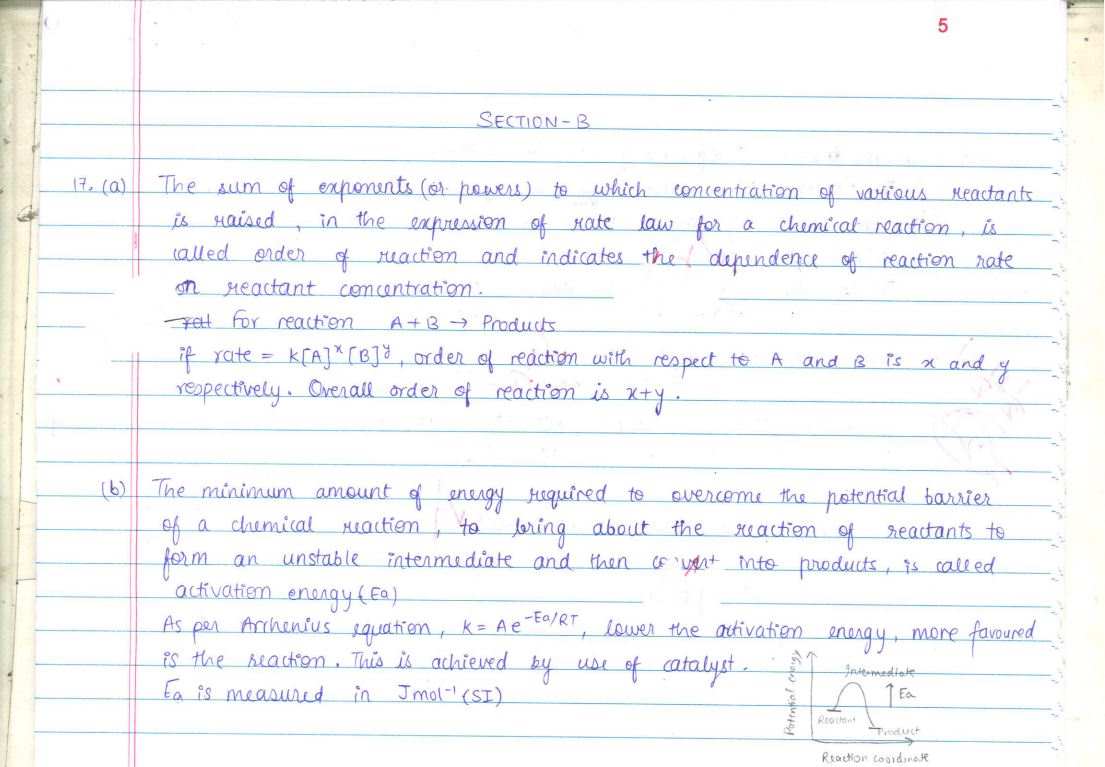 5
SECTION-B
17. (a) The sum of exponents (or powers) to which concentration of various reactants
is raised, in the expression of rate law for a chemical reaction, is
called order of reaction and indicates the dependence of reaction rate
on reactant concentration.
For reaction A + B → Products
if rate = K[A]ˣ[B]ʸ, order of reaction with respect to A and B is x and y
respectively. Overall order of reaction is x+y.
(b) The minimum amount of energy required to overcome the potential barrier
of a chemical reaction, to bring about the reaction of reactants to
form an unstable intermediate and then convert into products, is called
activation energy (Ea)
As per Arrhenius equation, K = Ae^-Ea/RT, lower the activation energy, more favoured
is the reaction. This is achieved by use of catalyst.
Ea is measured in Jmol⁻¹ (SI)
Potential energy
Intermediate
Ea
Reactant
Product
Reaction coordinate